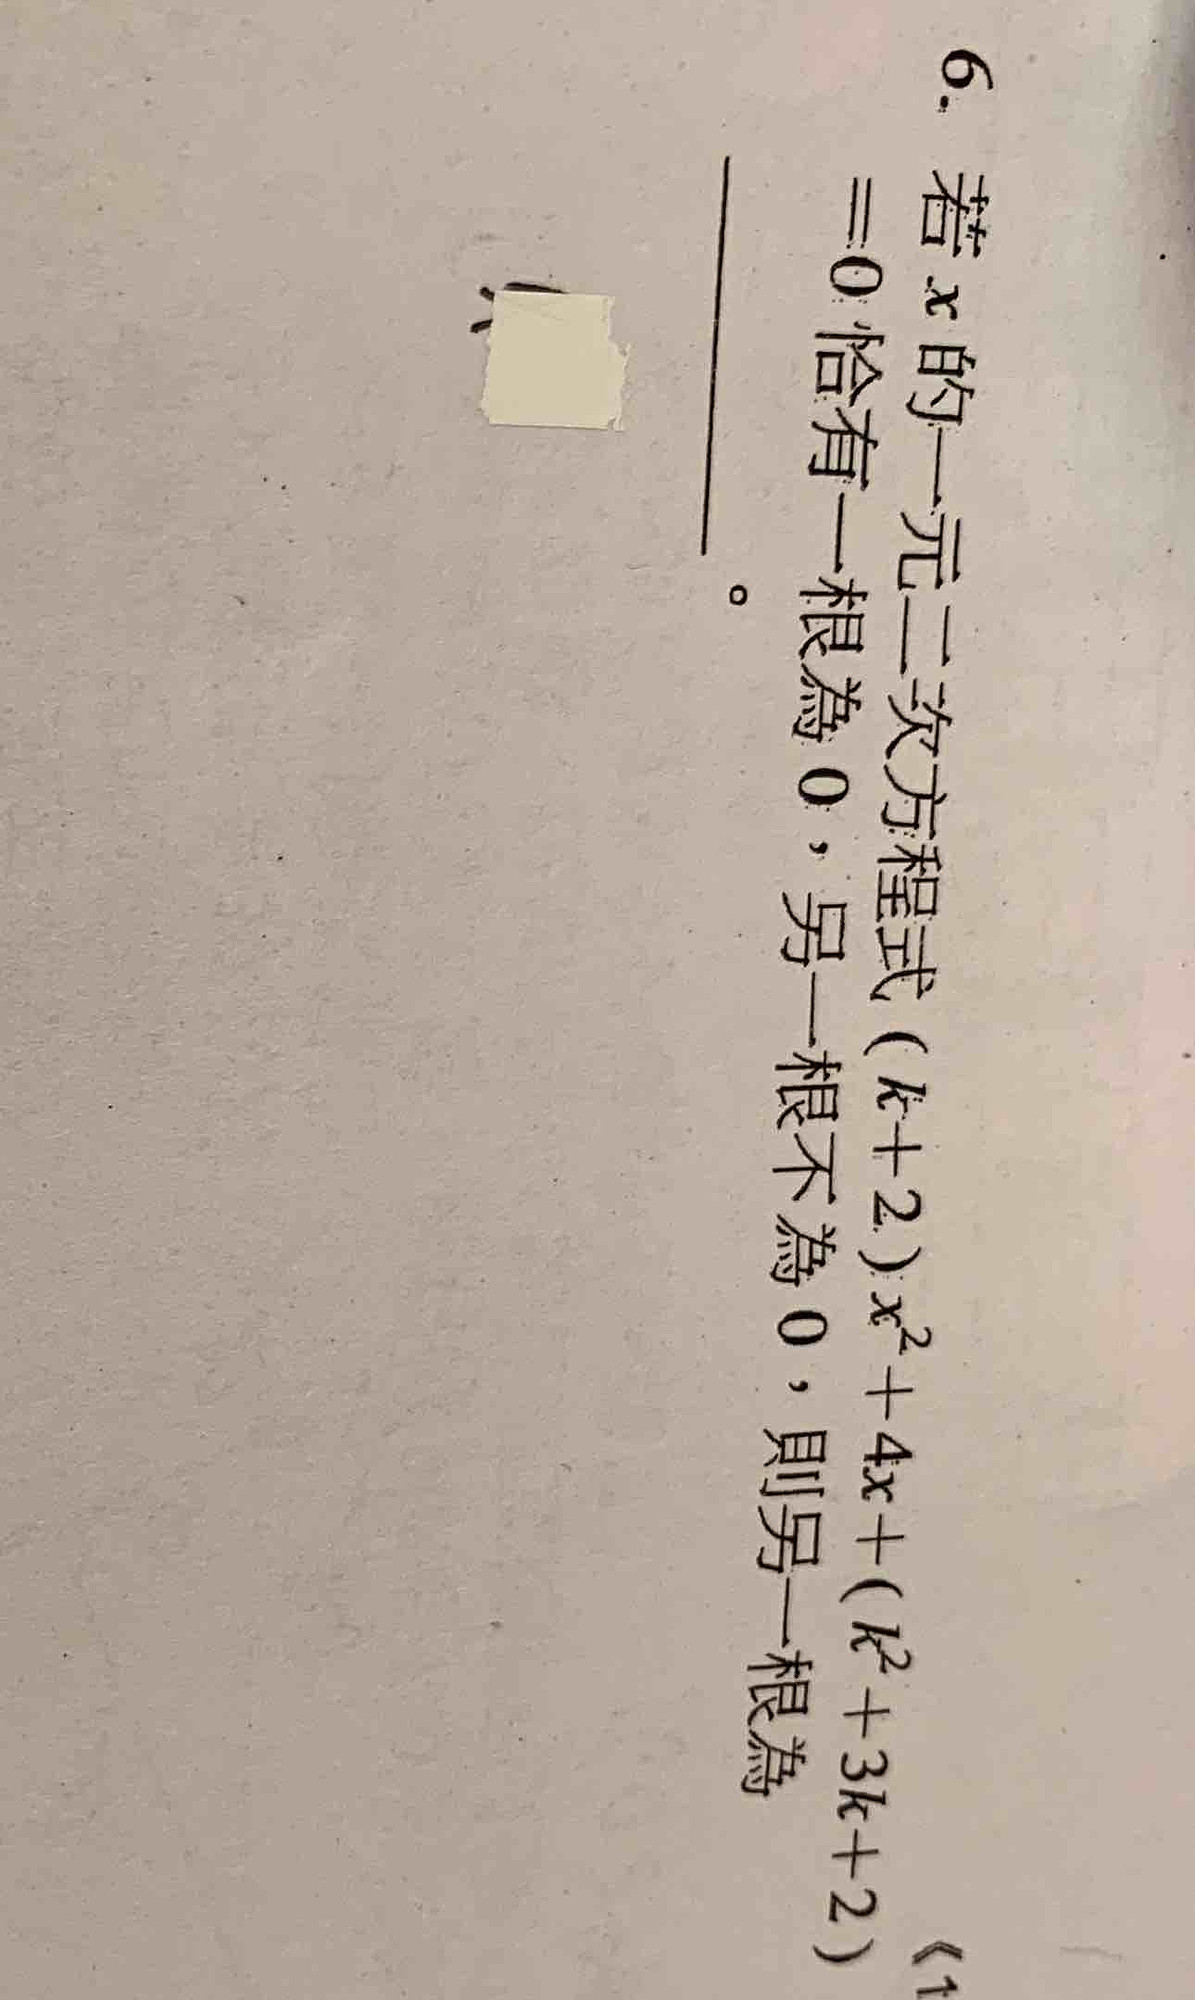 6. 若 x 的一元二次方程式 (k+2)x²+4x+(k²+3k+2)
=0 恰有一根為 0，另一根不為 0，則另一根為
。
《1